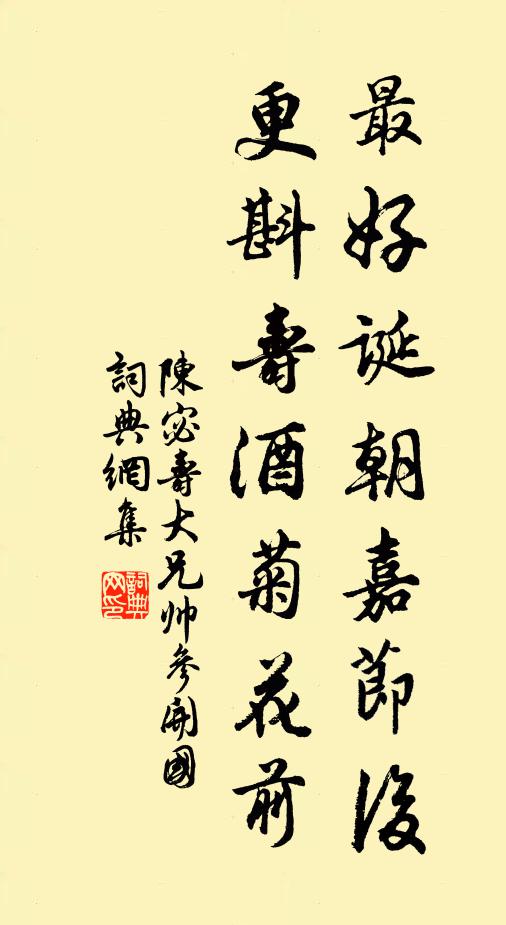 最好誕朝嘉節後
更斟壽酒菊花前
陳宓壽大兄帅參開國
詞典網集
詞典网印